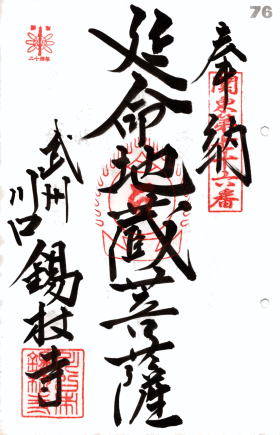 76
奉納
関東第七十六番
延命地蔵菩薩
武州川口
錫杖寺